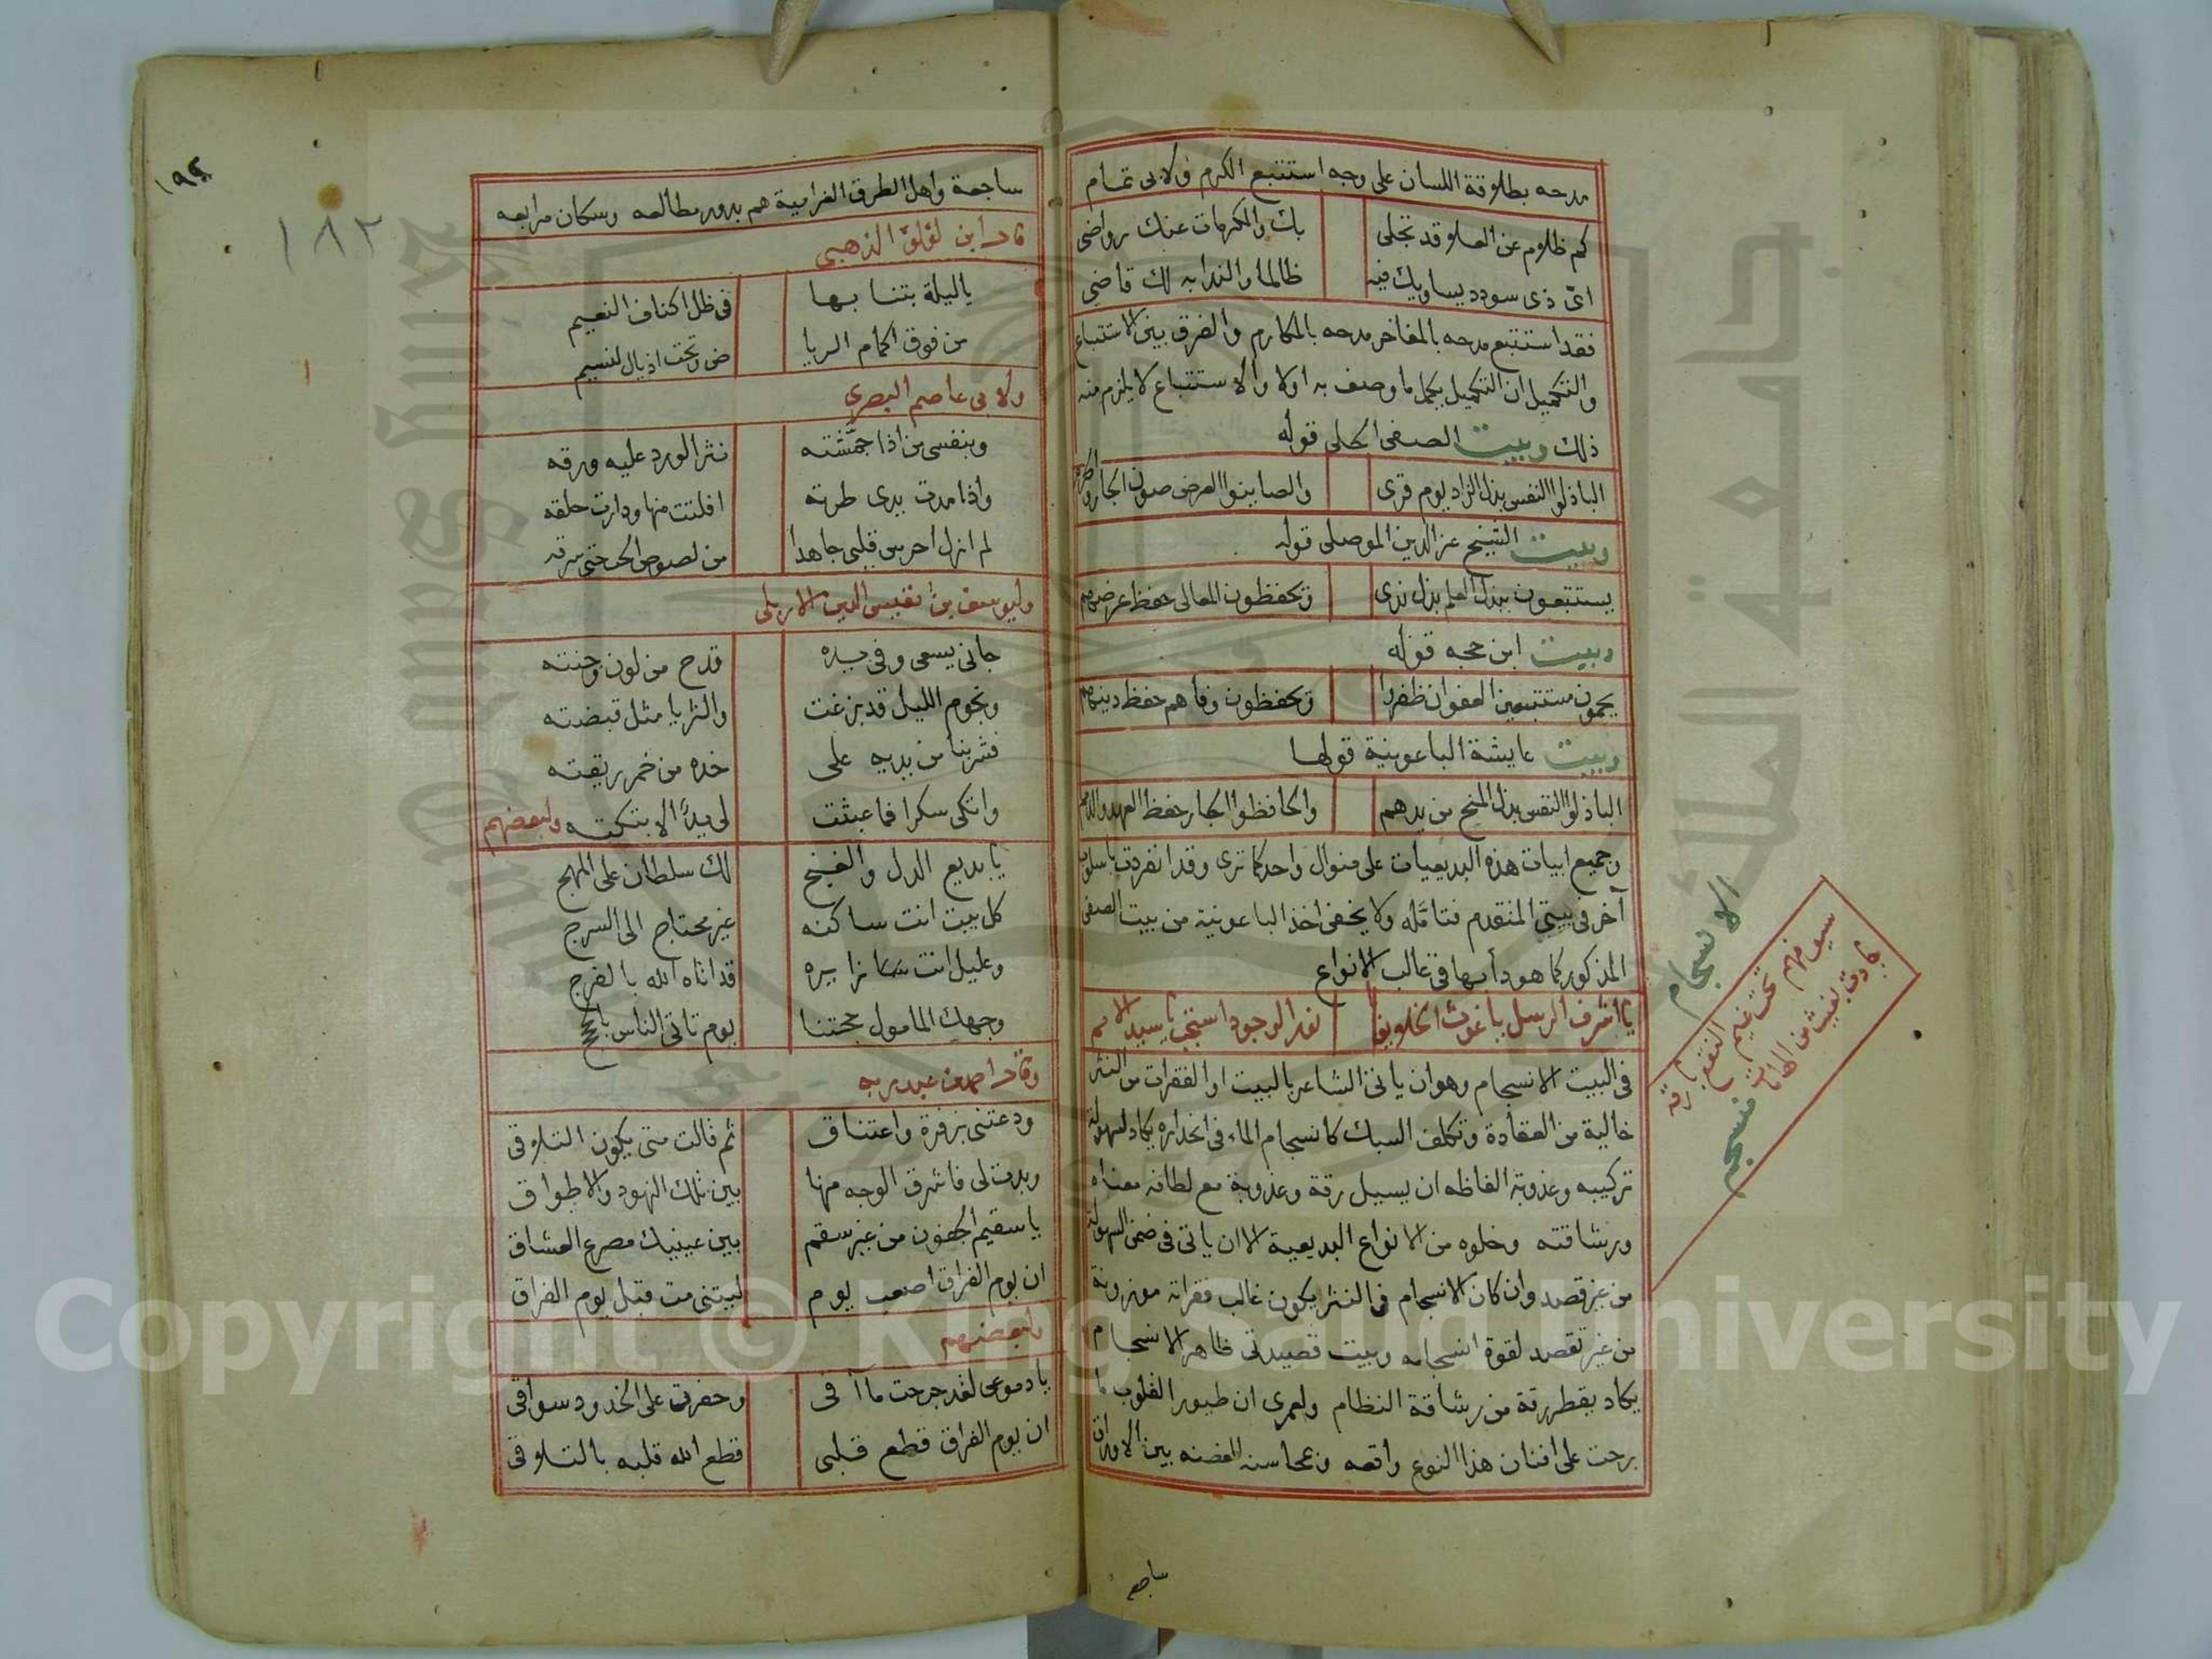 مدحه بطلاقة اللسان على وجه استتبع الكرم ولابى تمام
كم ظلام عن العلا قد تجلى بك والمكرمات عنك رواضى
اى ذى سودد يساويك فيه ظالما والندا به لك قاضى
فقد استتبع مدحه بالمفاخر مدحه بالمكارم والفرق بين الاستتباع
والتكميل ان التكميل يكمل ما وصف به اولا والاستتباع لا يلزم منه
ذلك وبيت الصفى الحلى قوله
الباذلوا النفس بذل الزاد يوم قرى والصاينوا العرض صون الجار والحرم
وبيت الشيخ عز الدين الموصلى قوله
يستتبعون ببذل العلم بذل ندى ويحفظون المعالى حفظ عرضهم
وبيت ابن حجه قوله
يحمون مستتبعين العفو ان ظفروا ويحفظون وفاهم حفظ دينهم
وبيت عايشة الباعونية قولها
الباذلوا النفس بذل المنح من يدهم والحافظوا الجار حفظ العهد والذمم
وجميع ابيات هذه البديعيات على منوال واحد كما ترى وقد انفردت باسلوب
آخر فى بيتى المتقدم فتامله ولا يخفى اخذ الباعونية من بيت الصفى
المذكور كما هو دأبها فى غالب الانواع
يا اشرف الرسل يا غوث الخلايق يا نور الوجود استجب يا سيد الامم
فى البيت الانسجام وهو ان ياتى الشاعر بالبيت او الفقرات من النثر
خالية من العقادة وتكلف السبك كانسجام الماء فى انحداره يكاد لسهولة
تركيبه وعذوبة الفاظه ان يسيل رقة وعذوبة مع لطافة معناه
ورشاقته وخلوه من الانواع البديعية الا ان ياتى فى ضمن السهولة
من غير قصد وان كان الانسجام فى النثر يكون غالب فقراته موزونة
من غير قصد لقوة انسجامه وبيت قصيدتى ظاهر الانسجام
يكاد يقطر رقة من رشاقة النظام ولعمرى ان طيور القلوب ما
برحت على افنان هذا النوع واقعه وبمحاسنه الغضنه بين الاوراق
الانسجام
سيوفهم تحت غيم النقع بارقة
منسجم
ساجع
١٩٤
١٨٢
ساجعة واهل الطرق الغرامية هم بدور مطالعه وسكان مرابعه
قال ابن لؤلؤ الذهبى
ياليلة بتنا بها فى ظل اكناف النعيم
من فوق اكمام الريا ض وتحت اذيال النسيم
ولابى عاصم البصرى
وبنفسى من اذا جمشته نثر الورد عليه ورقه
واذا مدت يدى طرته افلتت منها ودارت حلقه
لم ازل احرس قلبى جاهدا من لصوص الحب حتى سرقه
وليوسف بن نفيس الدين الاربلى
جانى يسعى وفى يده قدح من لون وجنته
ونجوم الليل قد بزغت والثريا مثل قبضته
فشربنا من يديه على خده من خمر ريقته
واتكى سكرا فما عبثت لى يدٌ الا بتكته ولبعضهم
يا بديع الدل والغنج لك سلطان على المهج
كل بيت انت ساكنه غير محتاج الى السرج
وعليل انت زايره قد اتاه الله بالفرج
وجهك المامول حجتنا يوم تاتى الناس بالحجج
وقال احمد بن عبد ربه
ودعتنى بزفرة واعتناق ثم قالت متى يكون التلاقى
وبدت لى فاشرق الوجه منها بين تلك النهود والاطواق
يا سقيم الجفون من غير سقم بين عينيك مصرع العشاق
ان يوم الفراق اصعب يوم ليتنى مت قبل يوم الفراق
ولبعضهم
يا دموعى لقد جرحت ماآقى وحفرت على الخدود سواقى
ان يوم الفراق قطع قلبى قطع الله قلبه بالتلاقى
Copyright © King Saud University
جامعة الملك